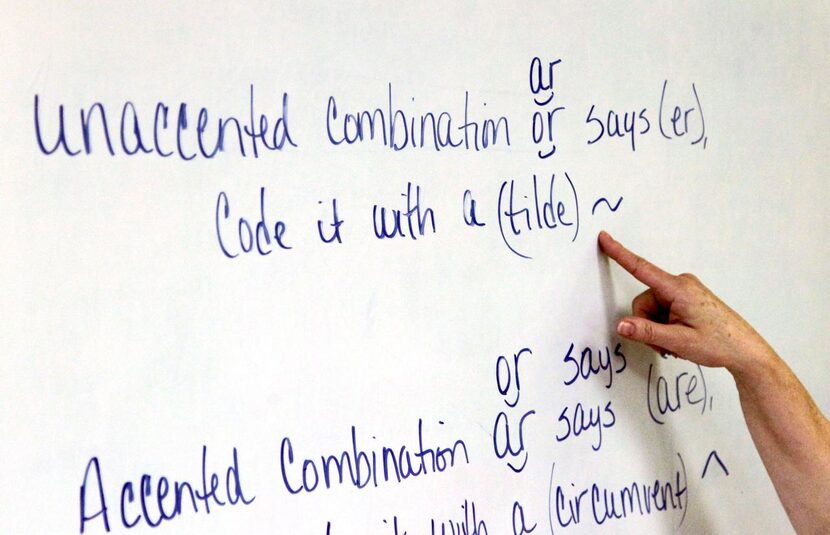 ar
unaccented combination or says (er),
Code it with a (tilde) ~
or says
Accented Combination ar says (are),
it with a (circumvent) ^